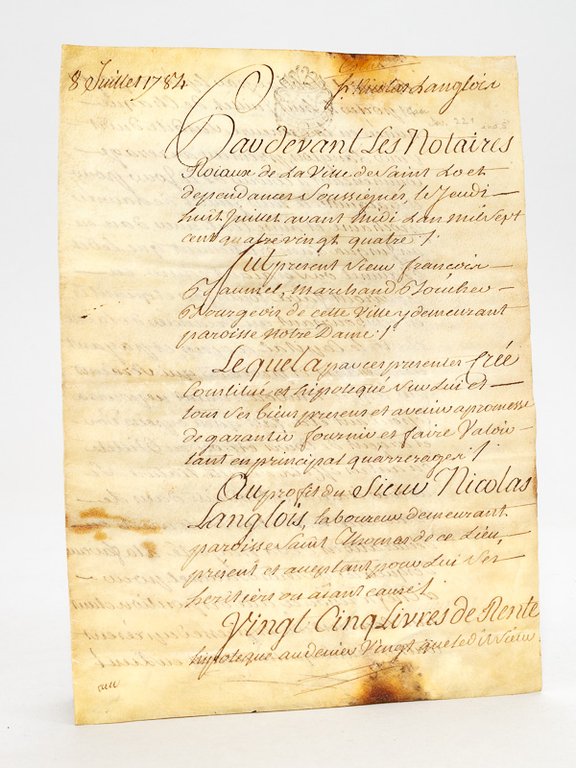 8 Juillet 1784
Sr Nicolas Langlois
221
Pardevant Les Notaires
Roiaux de La Ville de Saint Lo et
dependances Soussignés, le Jeudi
huit Juillet avant Midi L'an mil Sept
cent quatre vingt quatre /.
Fut present Sieur francois
Marchand
Bourgeois de cette Ville y demeurant
paroisse Notre Dame /.
Lequel a par ces presentes Créé
Constitué et hipotequé Sur Lui et
tous Ses biens presens et avenir a promesse
de garantir fournir et faire Valoir
tant en principal qu'arrerages /.
Au profit du Sieur Nicolas
Langlois, laboureur demeurant
paroisse Saint Thomas de ce Lieu,
présent et aceptant pour Lui Ses
heritiers ou aiant cause /.
Vingt Cinq Livres de Rente
hipoteque au denier Vingt que le dit Sieur